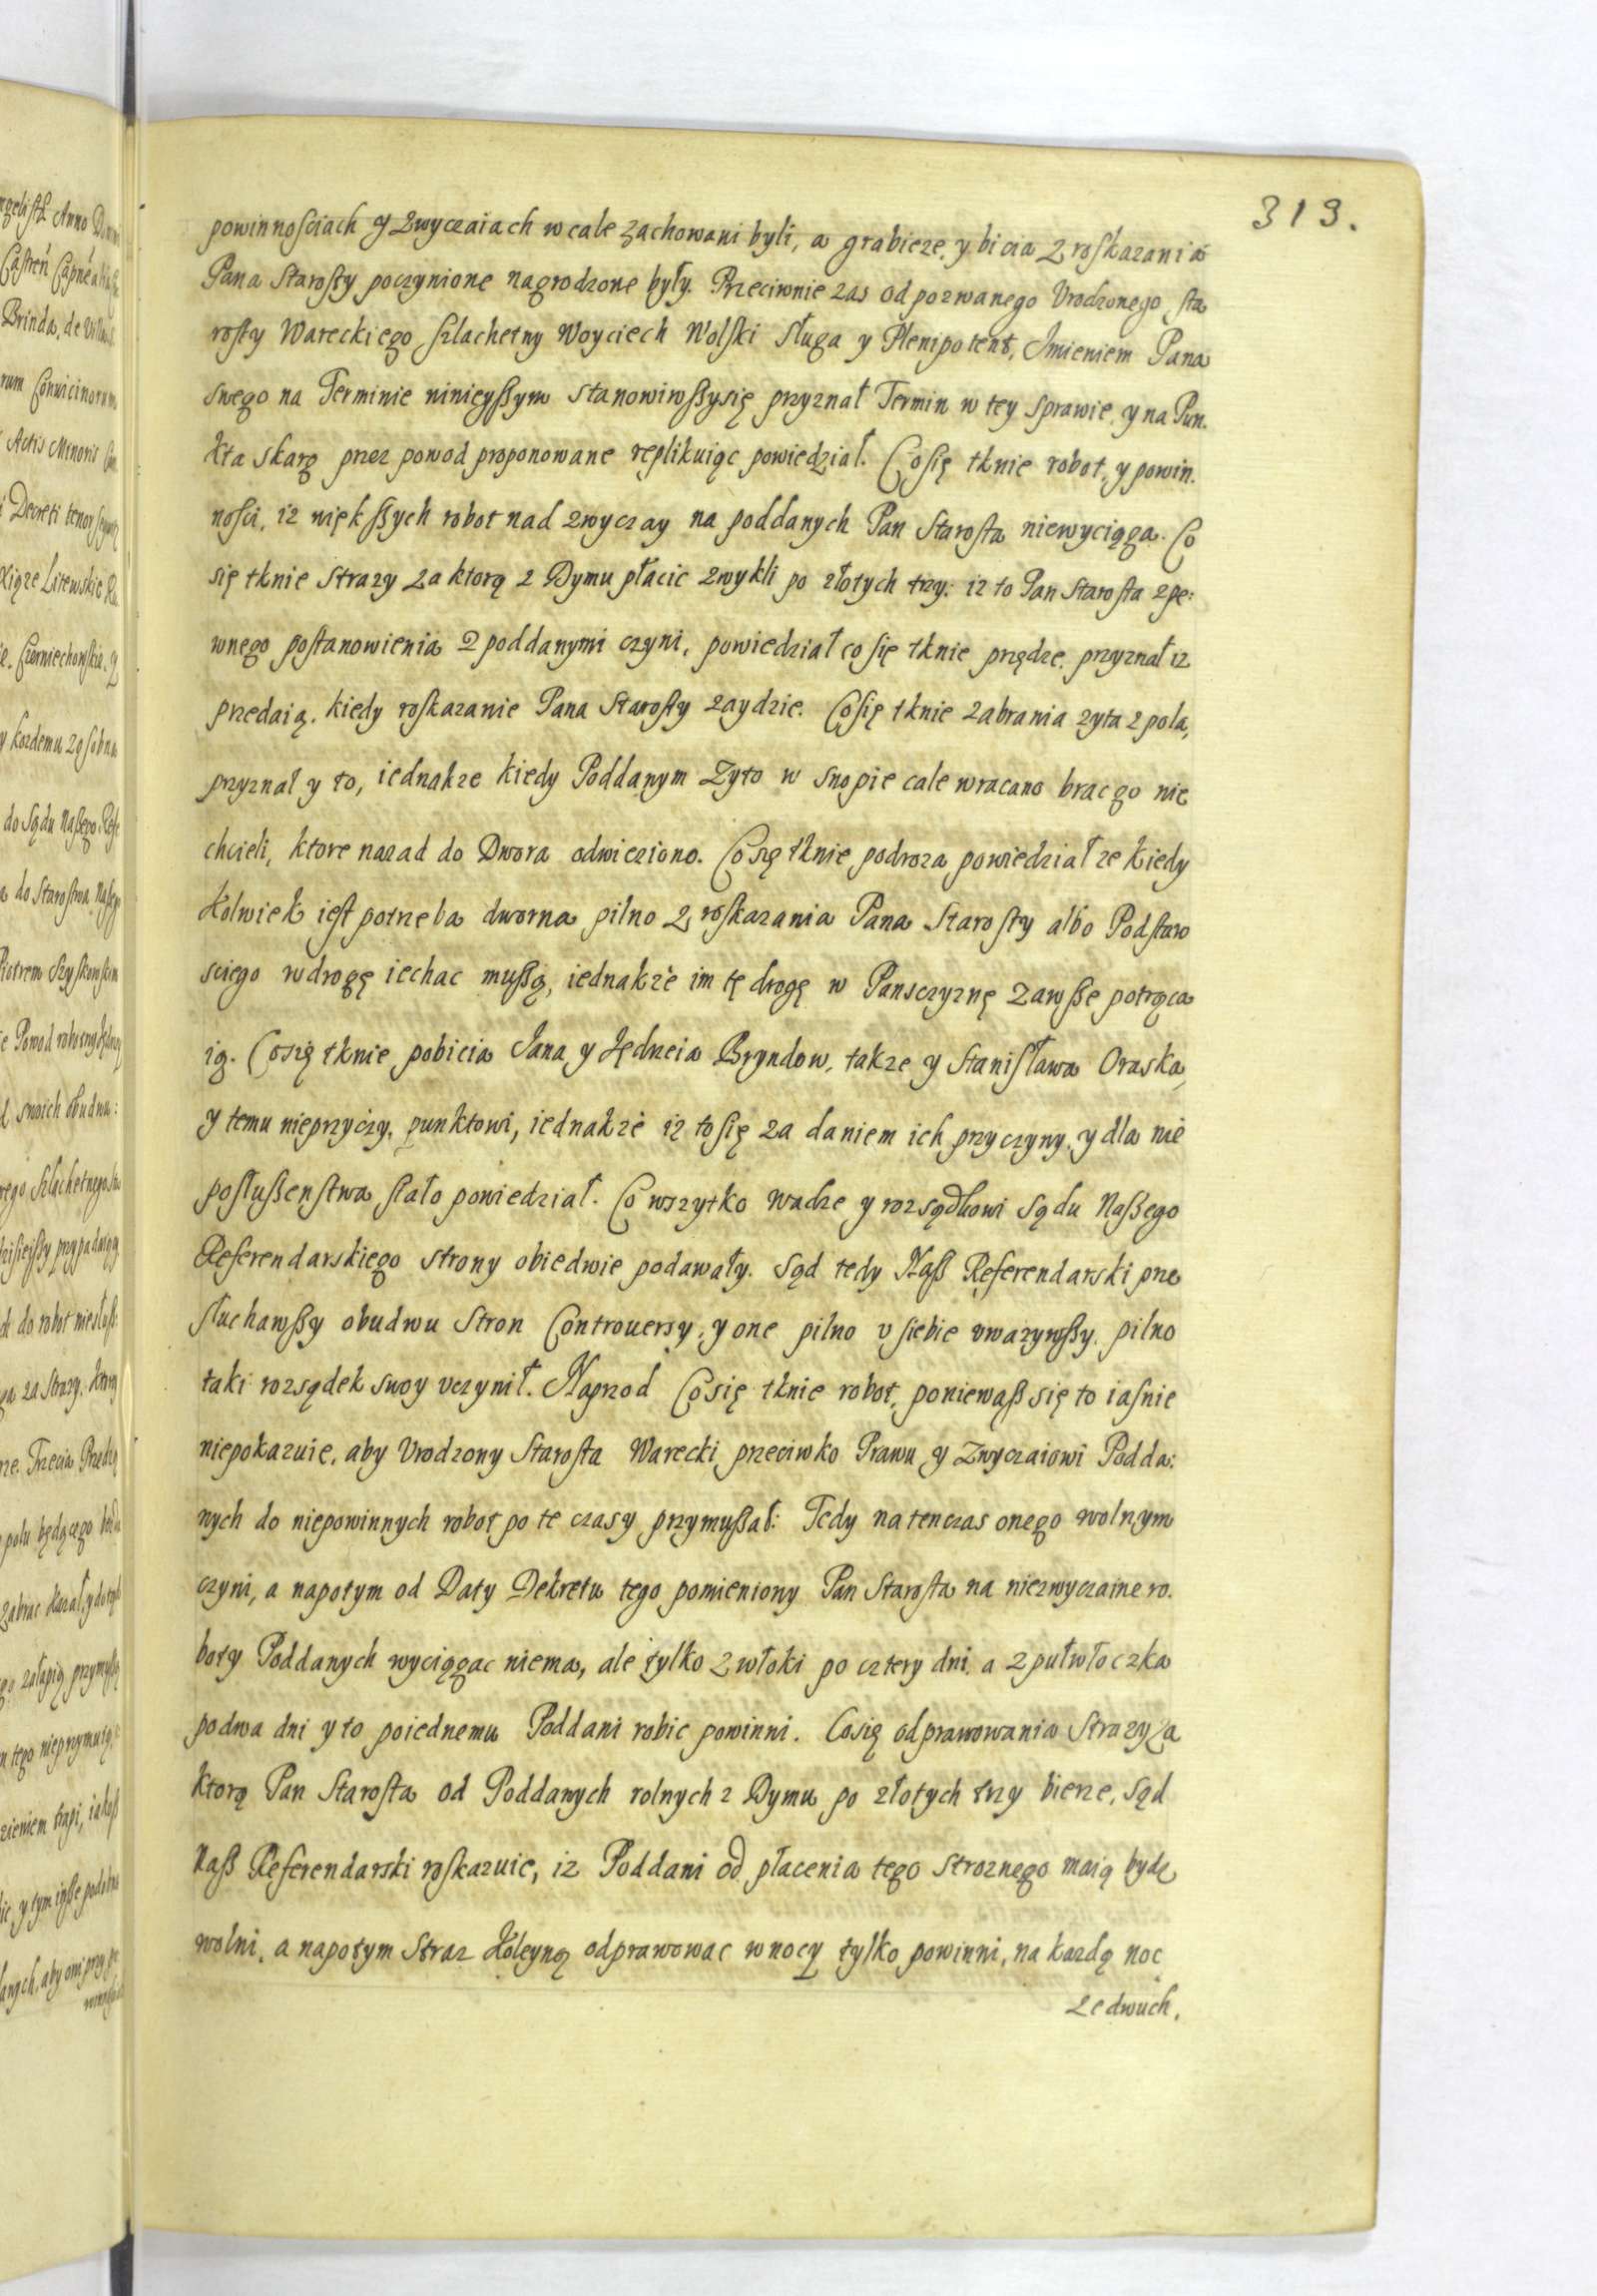 313.
powinnosciach y Zwyczaiach w cale zachowani byli, a grabieze, y bicia z roskazania
Pana Starosty poczynione nagrodzone były. Przeciwnie zas od pozwanego Vrodzonego sta
rosty Wareckiego Szlachetny Woyciech Wolski Sługa y Plenipotent, Imieniem Pana
swego na Terminie ninieyszym stanowiwszysię przyznał Termin w tey sprawie, y na Pun.
kta skarg przez powod proponowane replikuiąc powiedział. Co się tknie robot, y powin.
nosci, iz większych robot nad zwyczay na poddanych Pan Starosta niewyciąga. Co
się tknie Strazy za ktorą z Dymu płacic zwykli po złotych trzy: iz to Pan Starosta z pe:
wnego postanowienia z poddanymi czyni, powiedział co się tknie przędze, przyznał iz
przedaią, kiedy roskazanie Pana Starosty zaydzie. Co się tknie zabrania zyta z pola,
przyznał y to, iednakze kiedy Poddanym Zyto w snopie cale wracano brac go nie
chcieli, ktore nazad do Dwora odwieziono. Co się tknie podroza powiedział ze kiedy
kolwiek iest potrzeba dworna pilno z roskazania Pana Starosty albo Podstaro
sciego w drogę iechac muszą, iednakze im tę drogę w Pansczyznę zawsze potrąca
ią. Co się tknie pobicia Jana y Jędrzeia Bryndow, takze y Stanisława Oraska,
y temu nieprzyczy, punktowi, iednakze iz to się za daniem ich przyczyny, y dla nie
posłuszenstwa stało powiedział. Co wszytko wadze y rozsądkowi Sądu Naszego
Referendarskiego strony obiedwie podawały. Sąd tedy Nasz Referendarski prze
słuchawszy obudwu Stron Controuersy, y one pilno v siebie vwazywszy, pilno
taki rozsądek swoy vczynił. Naprzod Co się tknie robot, poniewasz się to iasnie
niepokazuie, aby Vrodzony Starosta Warecki przeciwko Prawu y Zwyczaiowi Podda:
nych do niepowinnych robot po te czasy przymuszał: Tedy na tenczas onego wolnym
czyni, a napotym od Daty Dekretu tego pomieniony Pan Starosta na niezwyczaine ro.
boty Poddanych wyciągac niema, ale tylko z włoki po cztery dni, a z pułwłoczka
po dwa dni y to poiednemu Poddani robic powinni. Co się odprawowania Strazy za
ktorą Pan Starosta od Poddanych rolnych z Dymu po złotych trzy bierze, Sąd
Nasz Referendarski roskazuie, iz Poddani od płacenia tego stroznego maią bydz
wolni, a napotym Straz Koleyną odprawowac w nocy tylko powinni, na kazdą noc
ze dwuch,